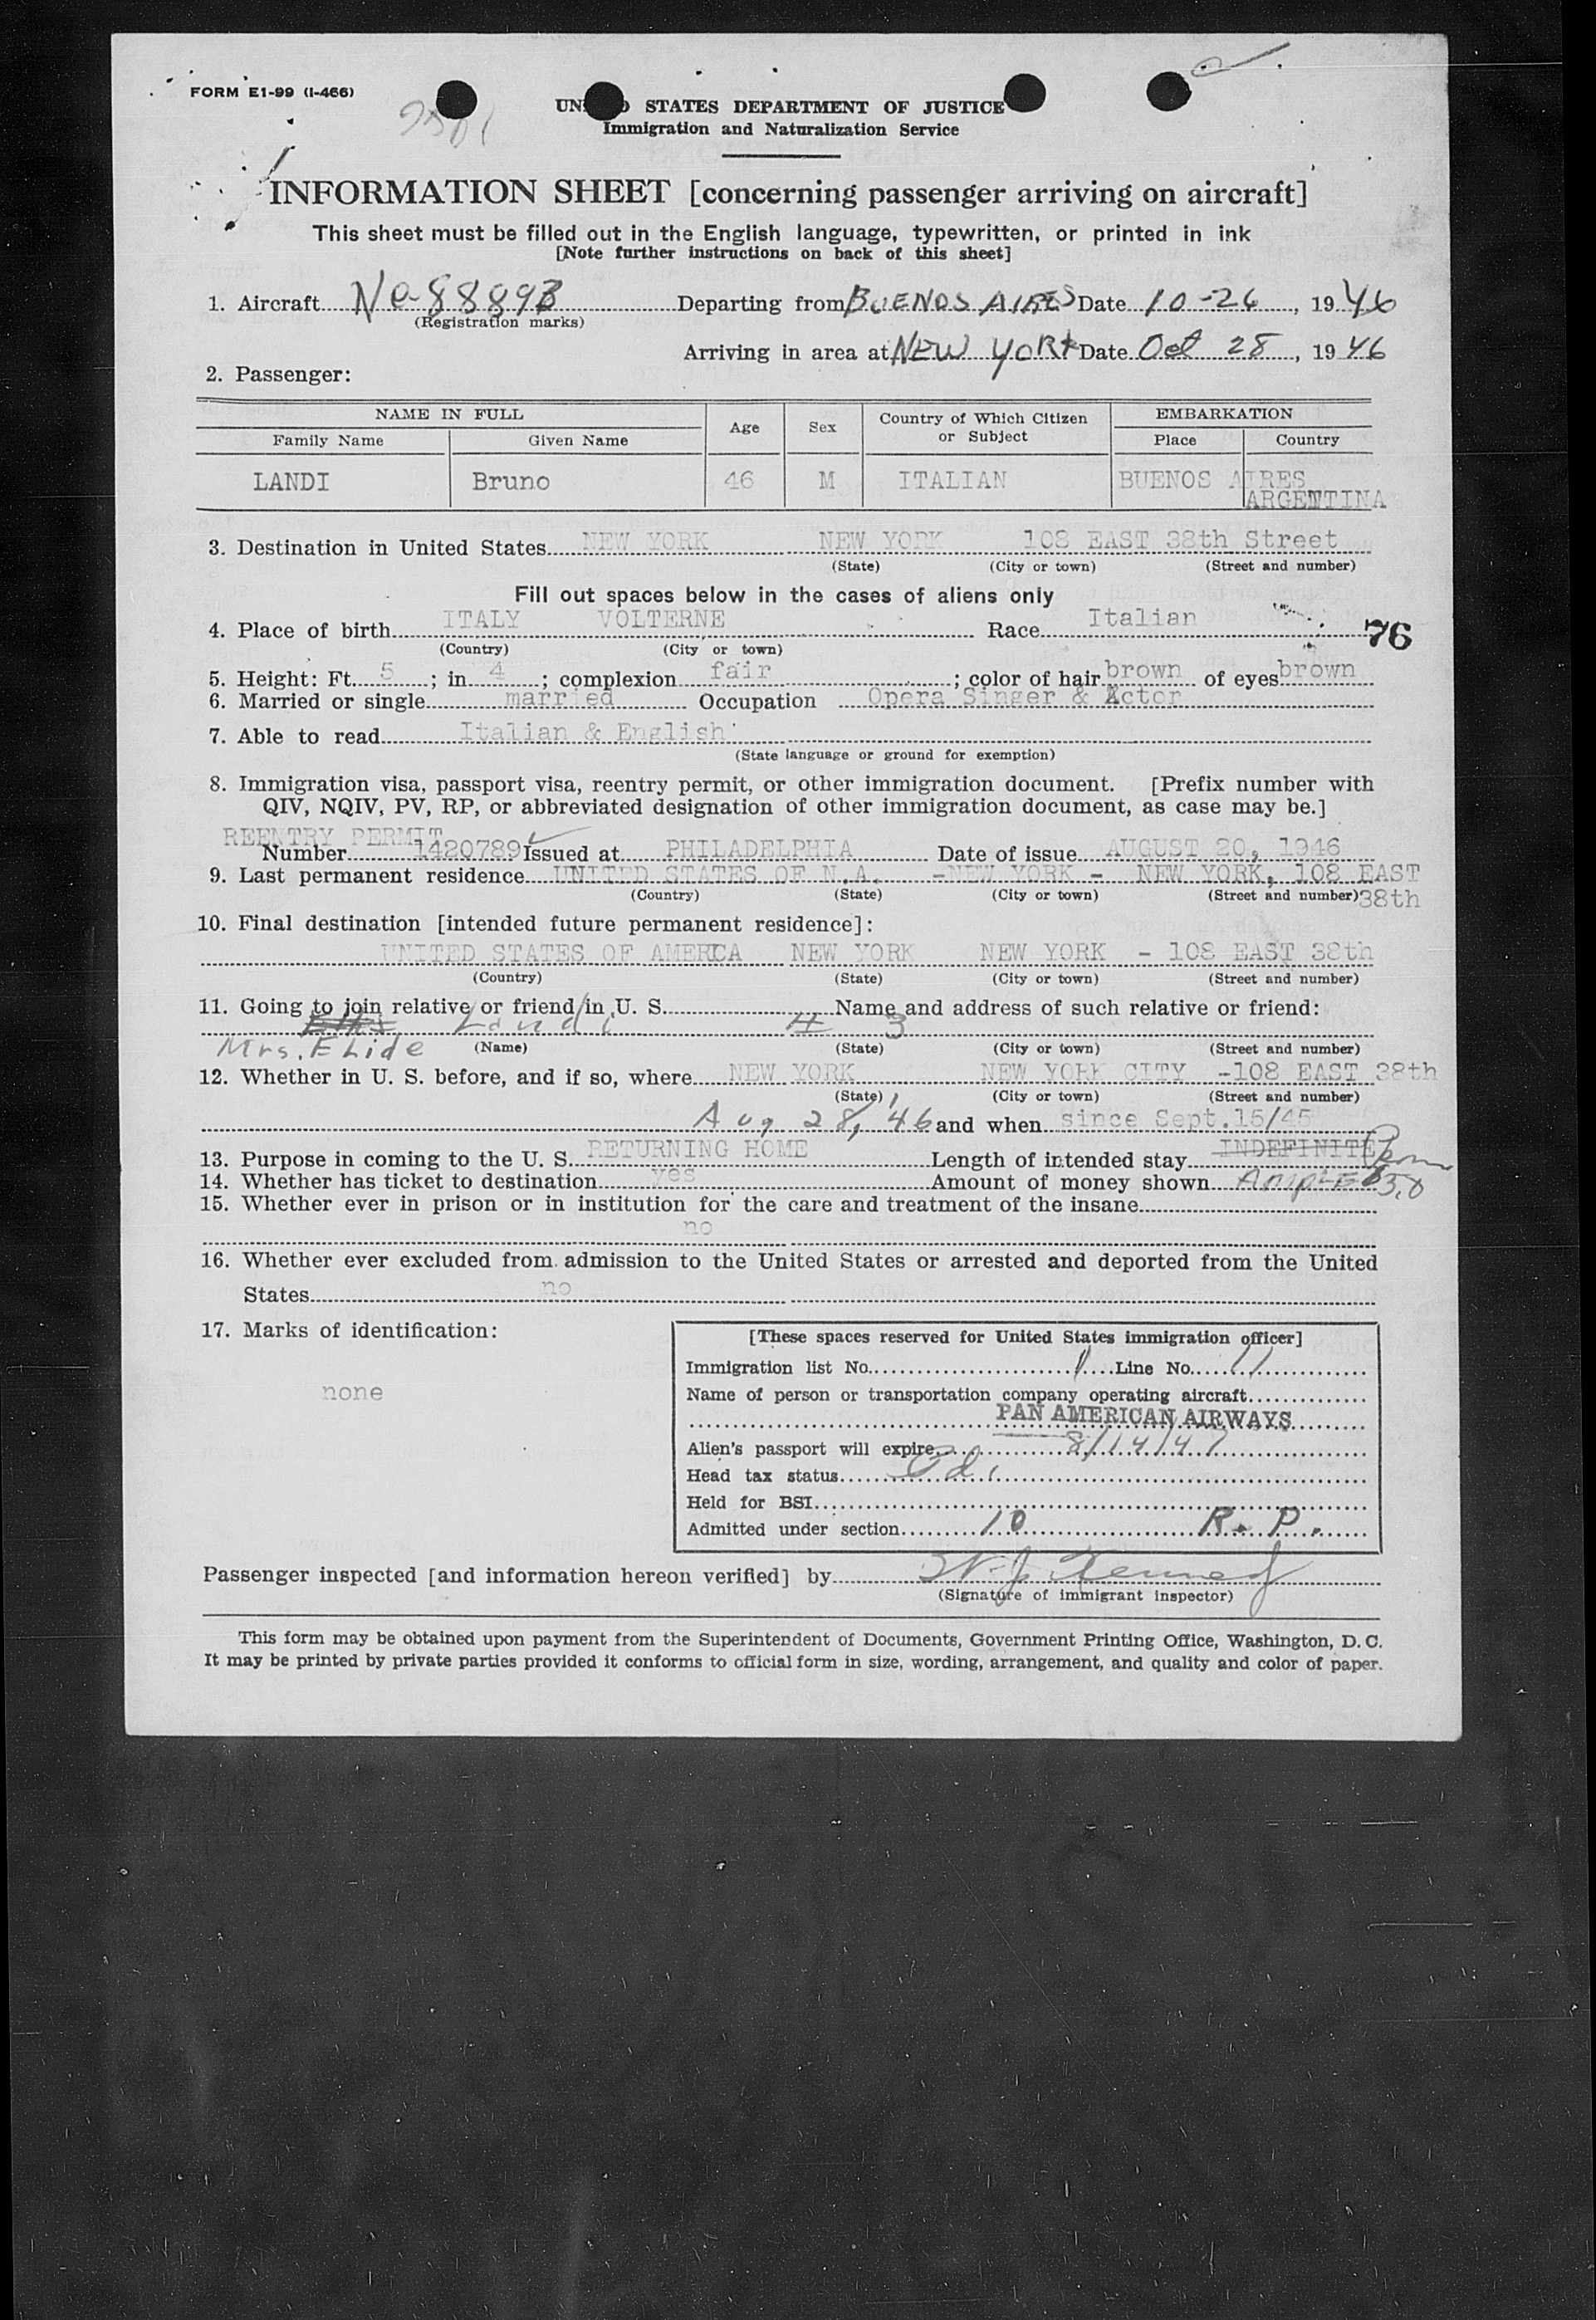 FORM E1-99 (I-466)
UN STATES DEPARTMENT OF JUSTICE
Immigration and Naturalization Service
INFORMATION SHEET [concerning passenger arriving on aircraft]
This sheet must be filled out in the English language, typewritten, or printed in ink
[Note further instructions on back of this sheet]
1. Aircraft Departing from BUENOS AIRES Date 10-26, 1946
(Registration marks)
Arriving in area at NEW YORK Date Oct 28, 1946
2. Passenger:
NAME IN FULL Age Sex Country of Which Citizen or Subject EMBARKATION
Family Name Given Name Place Country
LANDI Bruno 46 M ITALIAN BUENOS AIRES
ARGENTINA
3. Destination in United States NEW YORK NEW YORK 108 EAST 38th Street
(State) (City or town) (Street and number)
Fill out spaces below in the cases of aliens only
4. Place of birth ITALY VOLTERNE Race Italian 76
(Country) (City or town)
5. Height: Ft. 5; in 4; complexion fair; color of hair brown of eyes brown
6. Married or single married Occupation Opera Singer & Actor
7. Able to read Italian & English
(State language or ground for exemption)
8. Immigration visa, passport visa, reentry permit, or other immigration document. [Prefix number with
QIV, NQIV, PV, RP, or abbreviated designation of other immigration document, as case may be.]
REENTRY PERMIT
Number 1420789 Issued at PHILADELPHIA Date of issue AUGUST 20, 1946
9. Last permanent residence UNITED STATES OF N.A. -NEW YORK - NEW YORK, 108 EAST
(Country) (State) (City or town) (Street and number) 38th
10. Final destination [intended future permanent residence]:
UNITED STATES OF AMERICA NEW YORK NEW YORK - 108 EAST 38th
(Country) (State) (City or town) (Street and number)
11. Going to join relative or friend in U. S. Name and address of such relative or friend:
Landi # 3
Mrs. Elide (Name) (State) (City or town) (Street and number)
12. Whether in U. S. before, and if so, where NEW YORK NEW YORK CITY -108 EAST 38th
(State) (City or town) (Street and number)
Aug 28, 46 and when since Sept.15/45
13. Purpose in coming to the U. S. RETURNING HOME Length of intended stay INDEFINITE
14. Whether has ticket to destination yes Amount of money shown AMPLE
15. Whether ever in prison or in institution for the care and treatment of the insane
no
16. Whether ever excluded from admission to the United States or arrested and deported from the United
States no
17. Marks of identification:
none
[These spaces reserved for United States immigration officer]
Immigration list No. 1 Line No. 11
Name of person or transportation company operating aircraft
PAN AMERICAN AIRWAYS
Alien's passport will expire 8/14/47
Head tax status Pd.
Held for BSI
Admitted under section 10 R. P.
Passenger inspected [and information hereon verified] by Kennedy
(Signature of immigrant inspector)
This form may be obtained upon payment from the Superintendent of Documents, Government Printing Office, Washington, D. C.
It may be printed by private parties provided it conforms to official form in size, wording, arrangement, and quality and color of paper.